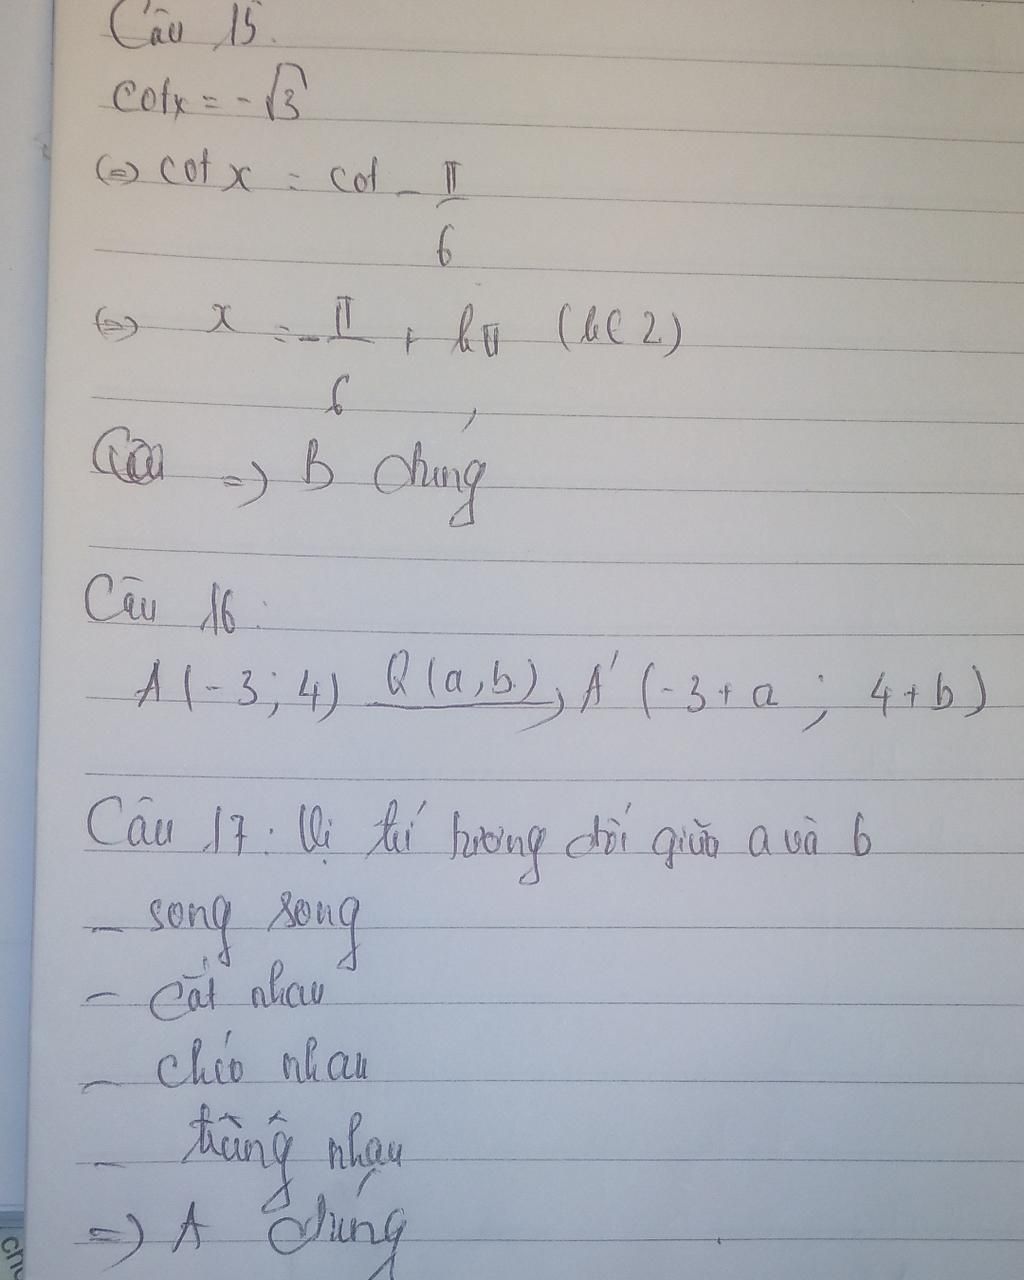 Câu 15.
cotx = -√3
(=) cot x = cot - π/6
(=) x = - π/6 + kπ (k∈Z)
=) B đúng
Câu 16:
A(-3; 4) Q(a,b) A'(-3+a ; 4+b)
Câu 17: Vị trí tương đối giữa a và b
- song song
- cắt nhau
- chéo nhau
- trùng nhau
=) A đúng